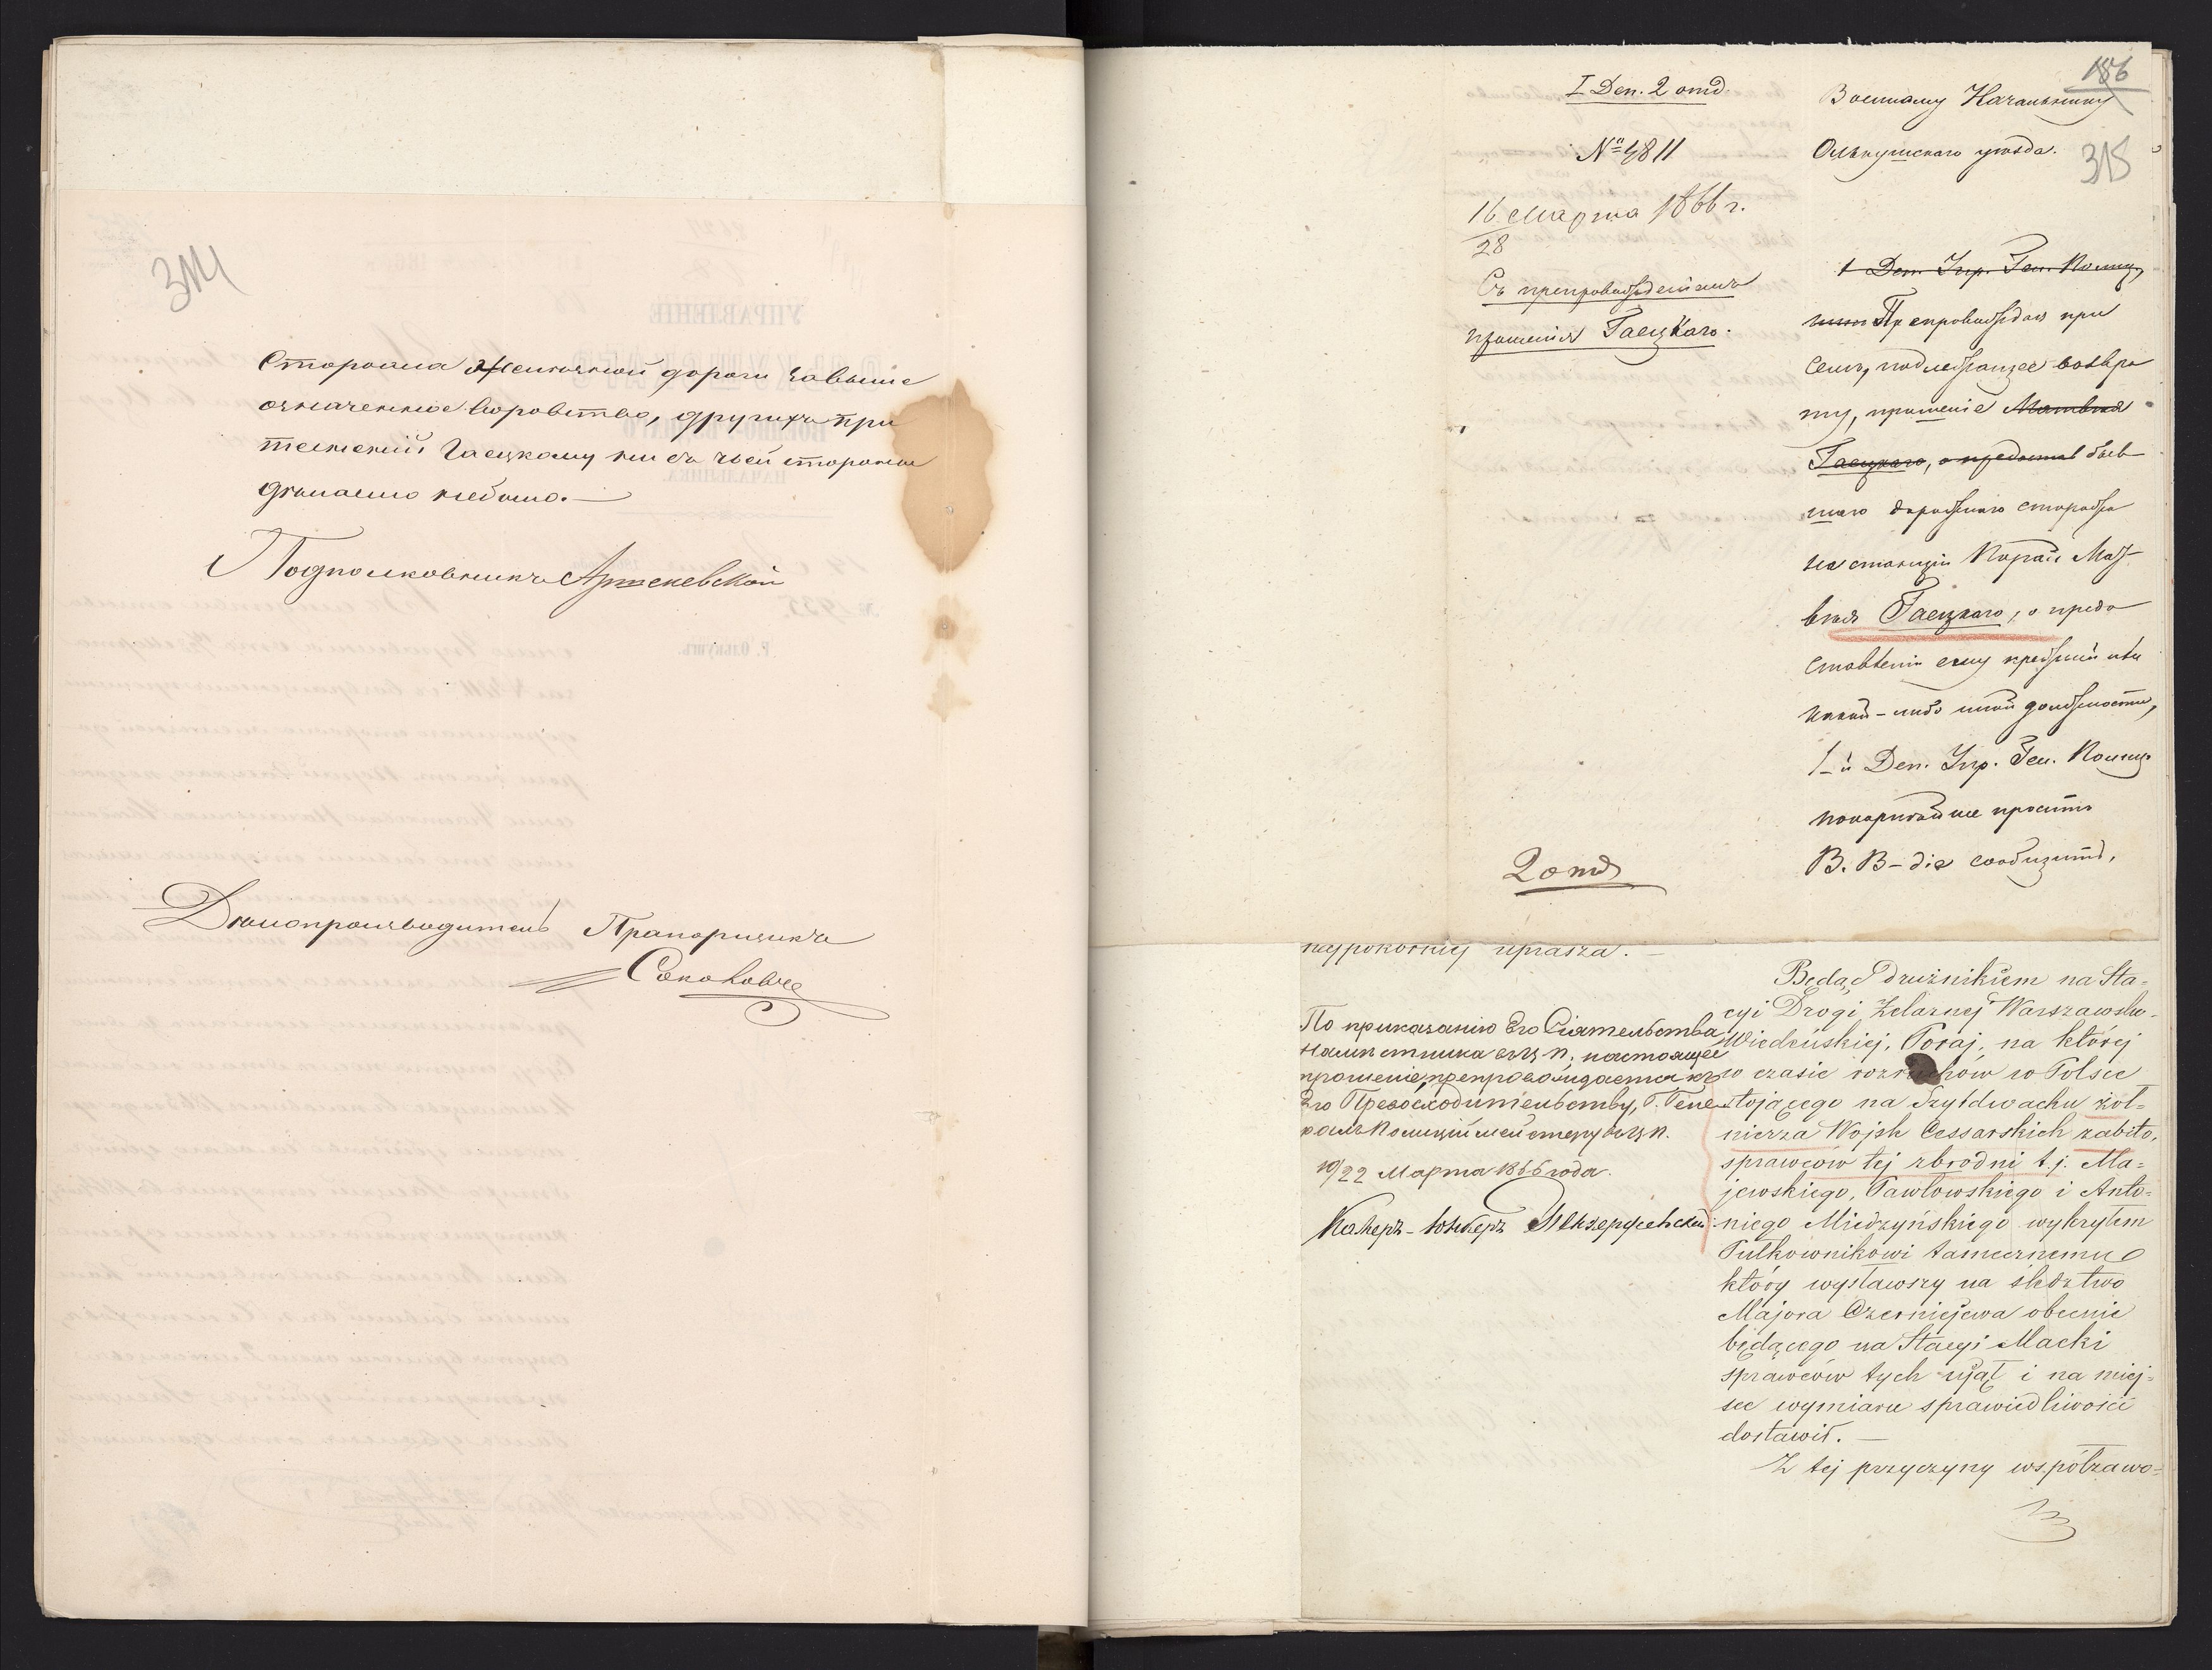 314
Сторожа Железной дороги за выше
означенное воровство, других при
теснений Гаецкому ни съ чьей стороны
делаемо небыло.
Подполковникъ
Делопроизводитель Прапорщикъ
186
315
I Деп. 2 отд.
№ 4811
16/28 Марта 1866 г.
Съ препровожденiемъ
прошенiя Гаецкаго.
2 отд
Военному Начальнику
Олькушскаго уезда.
1 Деп. Упр. Ген. Полиц.
Препровождая при
семъ, подлежащее возвра
ту, прошенiе Матвея
Гаецкаго, о предостав быв
шаго дорожнаго сторожа
на станцiи Порай Мат-
вея Гаецкаго, о предо
ставленiи ему прежней или
какой-либо иной должности,
1-й Деп. Упр. Ген. Полиц.
покорнейше проситъ
В. В-дiе сообщить,
najpokorniej uprasza. —
По приказанiю Его Сiятельства
Наместника въ Ц. П. настоящее
прошенiе препровождается къ
Его Превосходительству, Г. Гене
ралъ Полицiймейстеру въ Ц. П.
10/22 Марта 1866 года.
Камеръ-Юнкеръ
Będąc drużnikiem na Sta=
cyi Drogi Żelaznej Warszawsko-
Wiedeńskiej, Poraj, na której
w czasie rozruchów w Polsce
stojącego na Szyldwachu żoł=
nierza Wojsk Cessarskich zabito,
sprawców tej zbrodni t.j. Ma=
jewskiego, Pawłowskiego i Anto=
niego Miedzyńskiego wykryłem
Pułkownikowi tamecznemu
który wysławszy na śledztwo
Majora Czerniejewa obecnie
będącego na Stacyi Maćki
sprawców tych ujął i na miej=
sce wymiaru sprawiedliwości
dostawił. —
Z tej przyczyny współzawo=